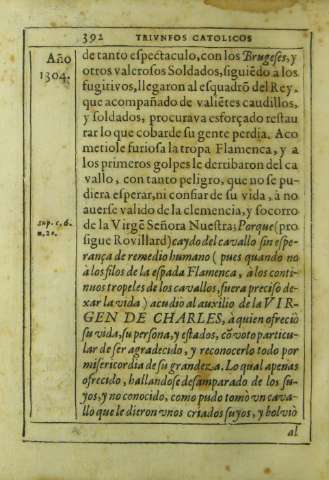 392 TRIVNFOS CATOLICOS
Año
1304.
de tanto espectaculo, con los Brugeses, y
otros valerosos Soldados, siguiẽdo a los
fugitivos, llegaron al esquadrõ del Rey,
que acompañado de valiẽtes caudillos,
y soldados, procurava esforçado restau
rar lo que cobarde su gente perdia. Aco
metiole furiosa la tropa Flamenca, y a
los primeros golpes le derribaron del ca
vallo, con tanto peligro, que no se pu
diera esperar, ni confiar de su vida, à no
auerse valido de la clemencia, y socorro
sup. c. 6.
n. 20.
de la Virgẽ Señora Nuestra; Porque (pro
sigue Rovillard) caydo del cavallo sin espe-
rança de remedio humano ( pues quando no
à los filos de la espada Flamenca, a los conti-
nuos tropeles de los cavallos, fuera preciso de-
xar la vida ) acudio al auxilio de la VIR-
GEN DE CHARLES, à quien ofreciò
su vida, su persona, y estados, cõ voto particu-
lar de ser agradecido, y reconocerlo todo por
misericordia de su grandeza. Lo qual apenas
ofrecido, hallandose desamparado de los su-
yos, y no conocido, como pudo tomò vn cava-
llo que le dieron vnos criados suyos, y bolviò
al